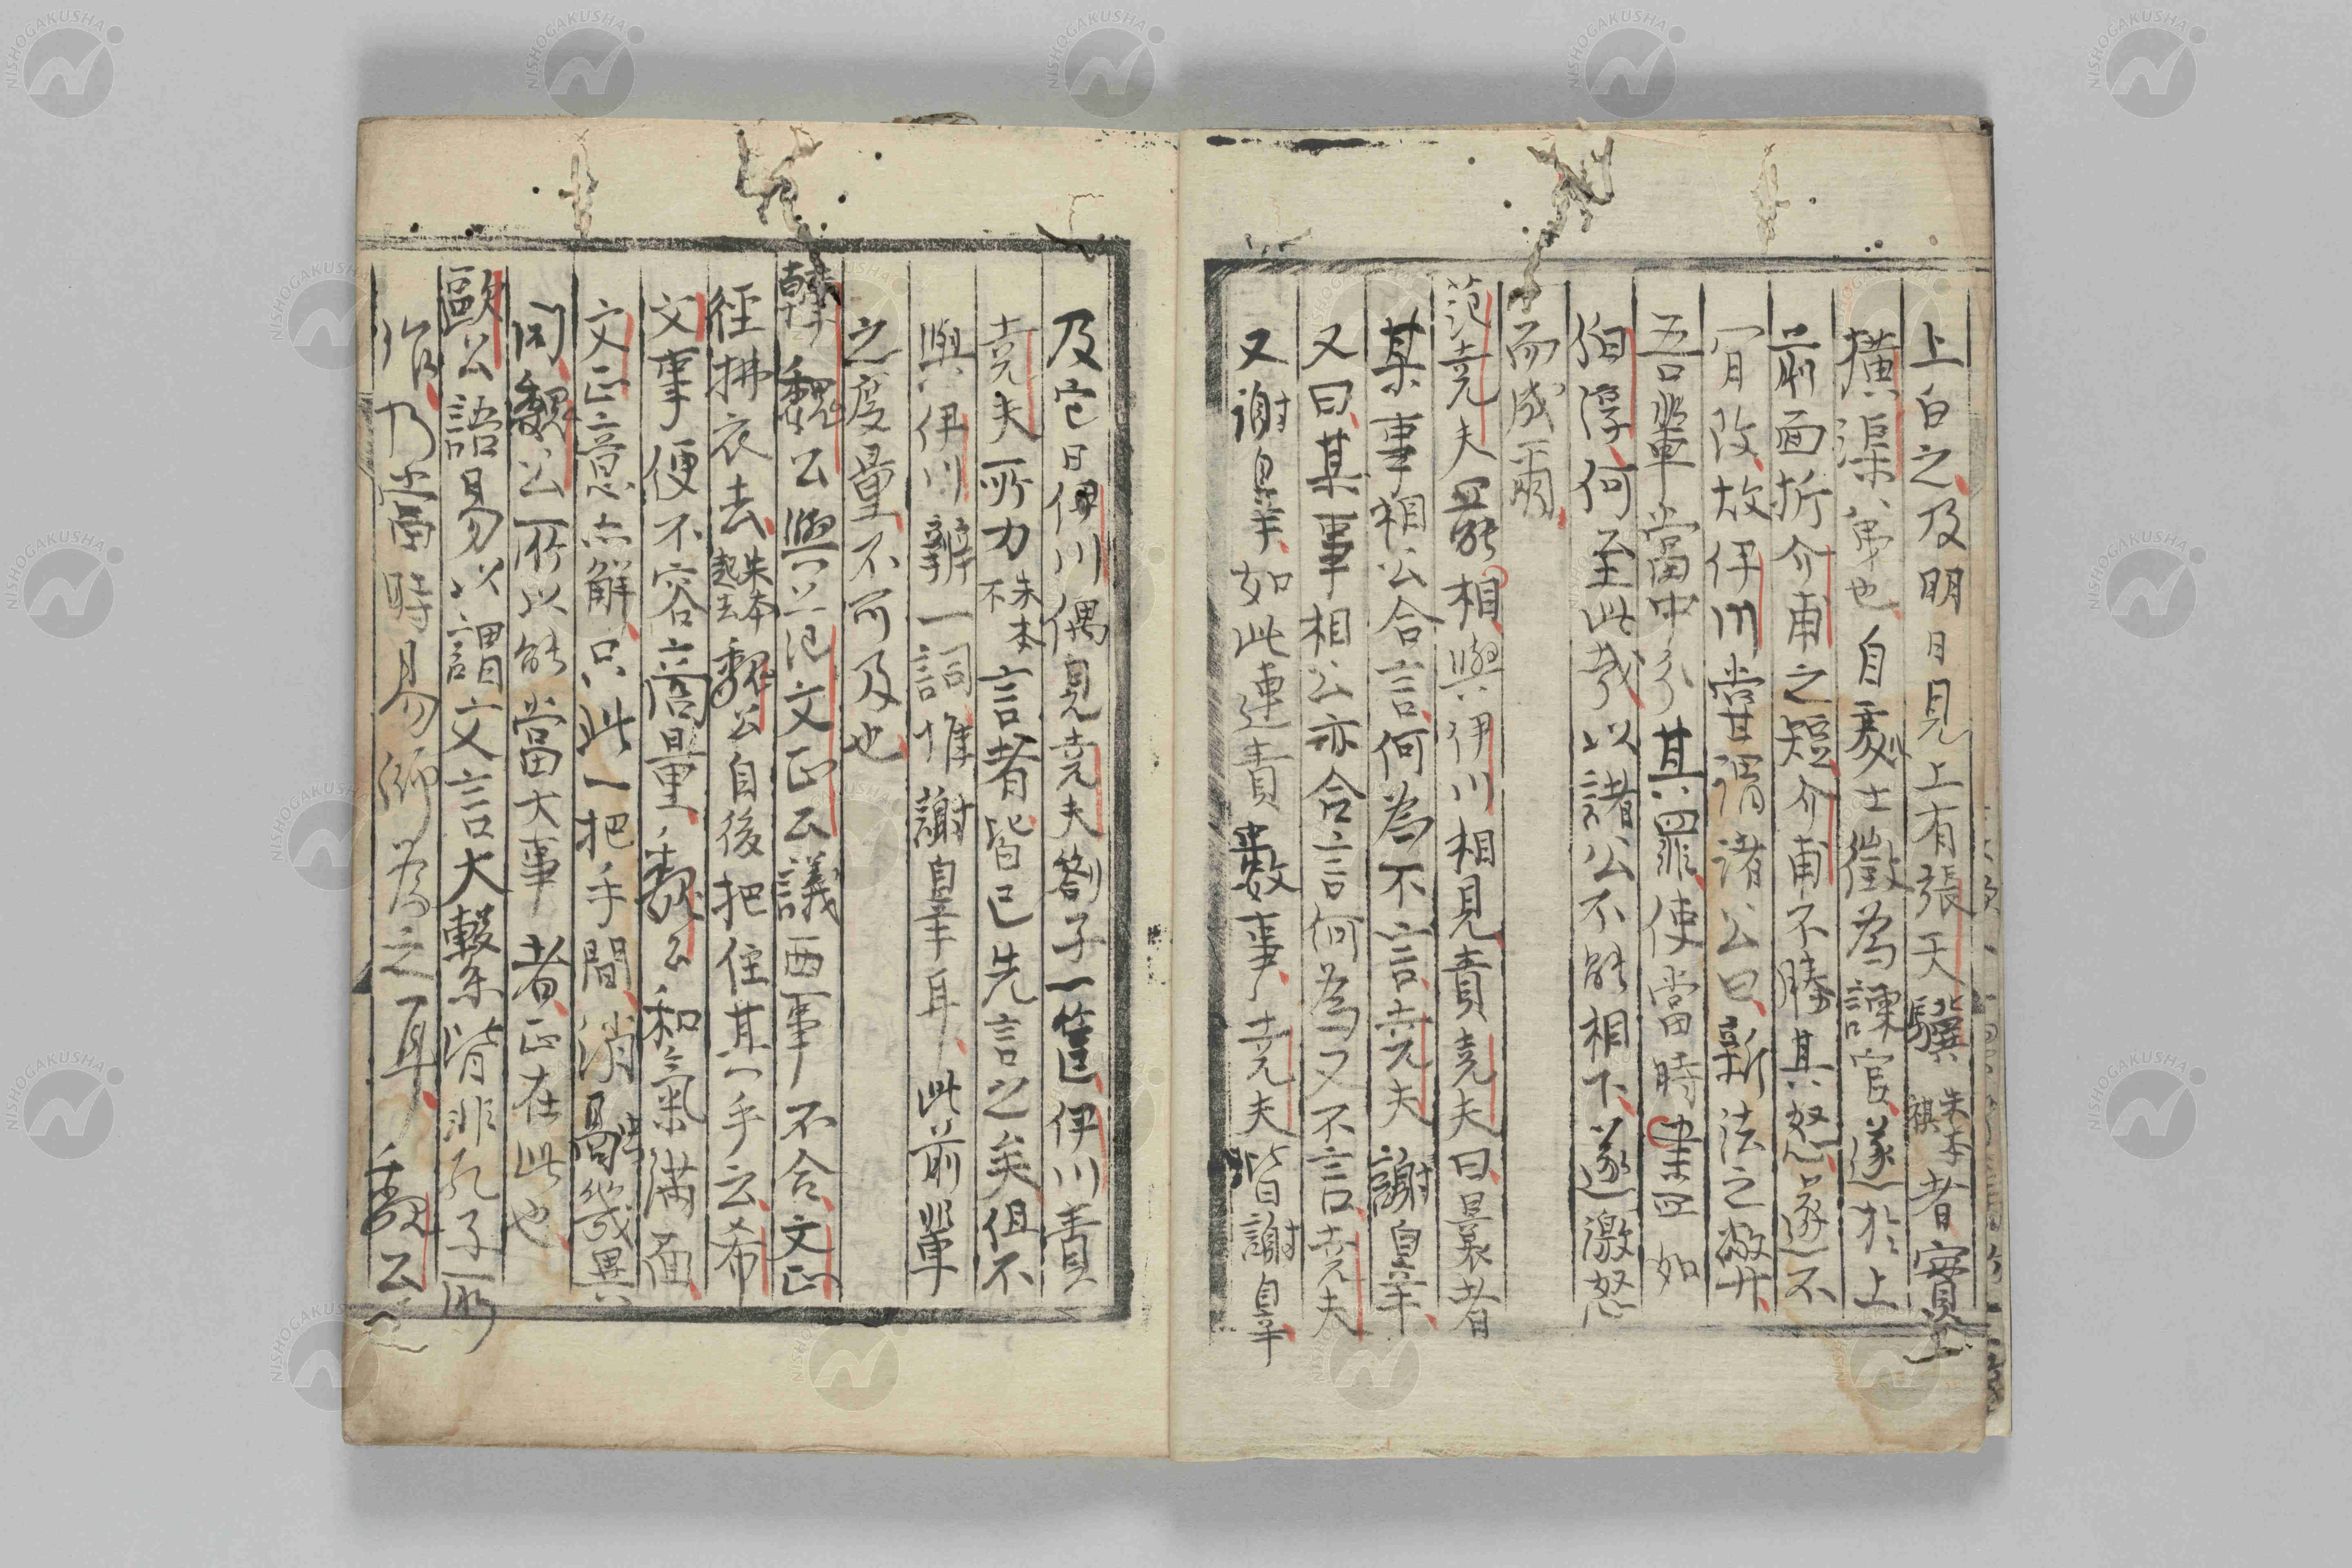 上白之及明日見上有張天驥朱本祺者實
橫渠弟也自處士徵為諫官遂於上
前面折介甫之短介甫不勝其怒遂不
肯改故伊川嘗謂諸公曰新法之弊
吾輩當中分其罪使當時盡如
伯淳何至此哉以諸公不能相下遂激怒
而成爾
范堯夫罷相與伊川相見責堯夫曰曩者
某事相公合言何為不言堯夫謝皇辜
又曰某事相公亦合言何為又不言堯夫
又謝皇辜如此連責數事堯夫皆謝皇辜
及它日伊川偶見堯夫劄子一篋伊川責
堯夫所力朱本不言者皆已先言之矣但不
與伊川辨一詞惟謝皇辜耳此前輩
之度量不可及也
韓魏公與范文正公議西事不合文正
徑拂衣去朱本起去魏公自後把住其手云希
文事便不容商量魏公和氣滿面
文正意亦解只此一把手間消融幾異
同魏公所以能當大事者正在此也
歐公語易以謂文言大繫皆非孔子所
作乃當時易師為之耳魏公
NISHOGAKUSHA